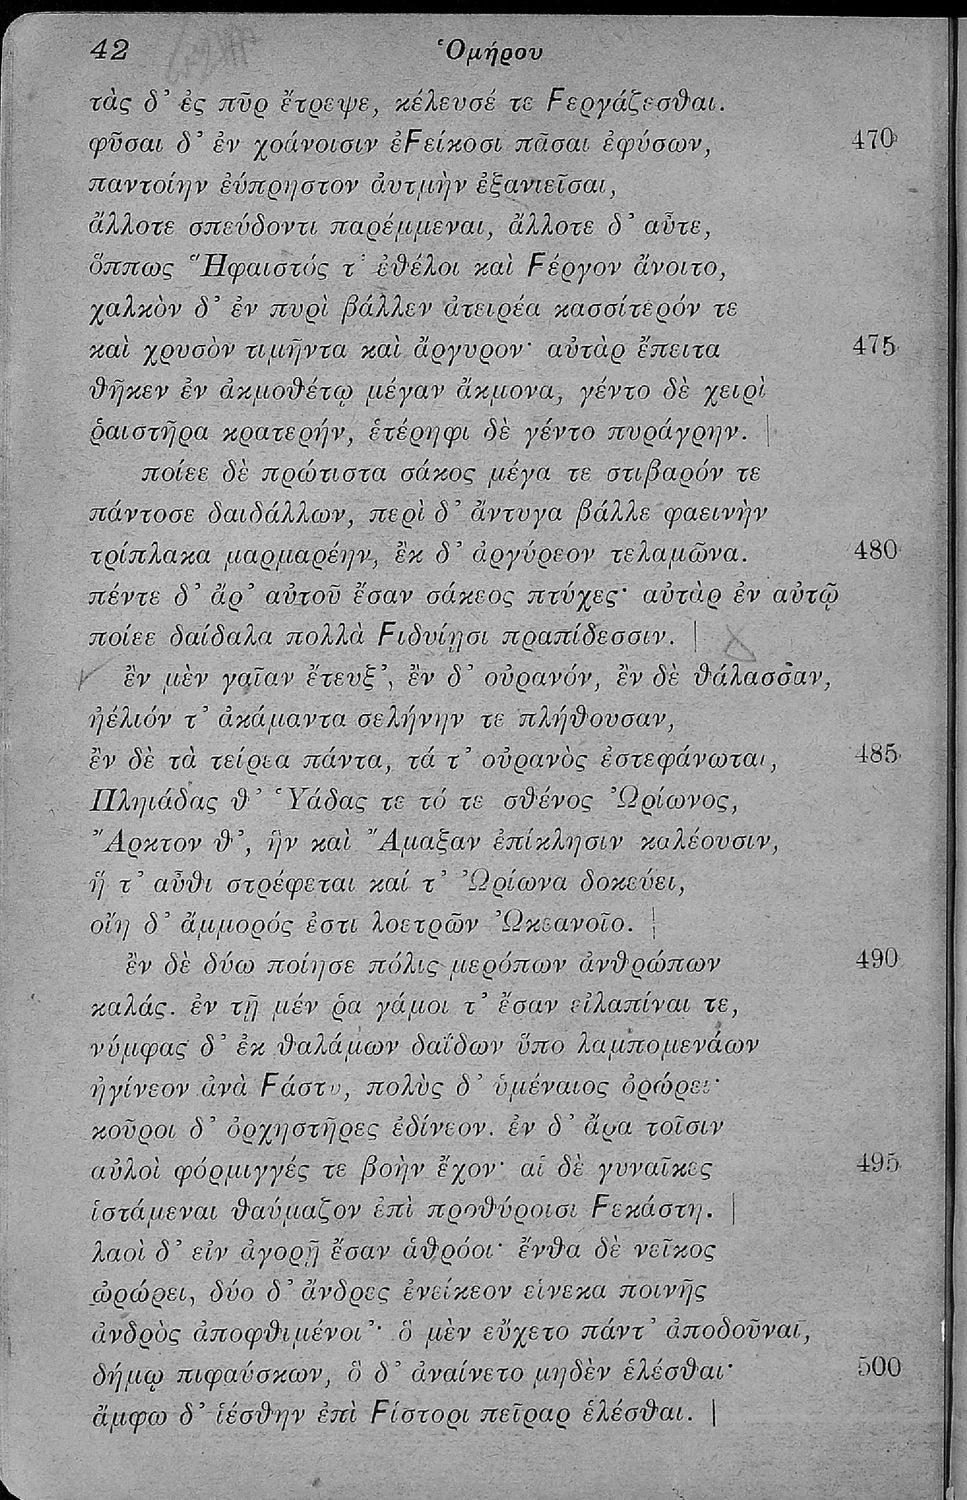 42 Ὁμήρου
τὰς δ’ ἐς πῦρ ἔτρεψε, κέλευσέ τε Ϝεργάζεσθαι.
φῦσαι δ’ ἐν χοάνοισιν ἐϜείκοσι πᾶσαι ἐφύσων, 470
παντοίην ἐύπρηστον ἀυτμὴν ἐξανιεῖσαι,
ἄλλοτε σπεύδοντι παρέμμεναι, ἄλλοτε δ’ αὖτε,
ὅππως Ἥφαιστός τ’ ἐθέλοι καὶ Ϝέργον ἄνοιτο,
χαλκὸν δ’ ἐν πυρὶ βάλλεν ἀτειρέα κασσίτερόν τε
καὶ χρυσὸν τιμῆντα καὶ ἄργυρον· αὐτὰρ ἔπειτα 475
θῆκεν ἐν ἀκμοθέτῳ μέγαν ἄκμονα, γέντο δὲ χειρὶ
ῥαιστῆρα κρατερήν, ἑτέρηφι δὲ γέντο πυράγρην.
ποίεε δὲ πρώτιστα σάκος μέγα τε στιβαρόν τε
πάντοσε δαιδάλλων, περὶ δ’ ἄντυγα βάλλε φαεινὴν
τρίπλακα μαρμαρέην, ἐκ δ’ ἀργύρεον τελαμῶνα. 480
πέντε δ’ ἄρ’ αὐτοῦ ἔσαν σάκεος πτύχες· αὐτὰρ ἐν αὐτῷ
ποίεε δαίδαλα πολλὰ Ϝιδυίῃσι πραπίδεσσιν.
ἐν μὲν γαῖαν ἔτευξ’, ἐν δ’ οὐρανόν, ἐν δὲ θάλασσαν,
ἠέλιόν τ’ ἀκάμαντα σελήνην τε πλήθουσαν,
ἐν δὲ τὰ τείρεα πάντα, τά τ’ οὐρανὸς ἐστεφάνωται, 485
Πληιάδας θ’ Ὑάδας τε τό τε σθένος Ὠρίωνος,
Ἄρκτον θ’, ἣν καὶ Ἄμαξαν ἐπίκλησιν καλέουσιν,
ἥ τ’ αὖθι στρέφεται καί τ’ Ὠρίωνα δοκεύει,
οἴη δ’ ἄμμορός ἐστι λοετρῶν Ὠκεανοῖο.
ἐν δὲ δύω ποίησε πόλις μερόπων ἀνθρώπων 490
καλάς. ἐν τῇ μέν ῥα γάμοι τ’ ἔσαν εἰλαπίναι τε,
νύμφας δ’ ἐκ θαλάμων δαΐδων ὕπο λαμπομενάων
ἠγίνεον ἀνὰ Ϝάστυ, πολὺς δ’ ὑμέναιος ὀρώρει·
κοῦροι δ’ ὀρχηστῆρες ἐδίνεον. ἐν δ’ ἄρα τοῖσιν
αὐλοὶ φόρμιγγές τε βοὴν ἔχον· αἱ δὲ γυναῖκες 495
ἱστάμεναι θαύμαζον ἐπὶ προθύροισι Ϝεκάστη.
λαοὶ δ’ εἰν ἀγορῇ ἔσαν ἁθρόοι· ἔνθα δὲ νεῖκος
ὠρώρει, δύο δ’ ἄνδρες ἐνείκεον εἵνεκα ποινῆς
ἀνδρὸς ἀποφθιμένοι’· ὃ μὲν εὔχετο πάντ’ ἀποδοῦναι,
δήμῳ πιφαύσκων, ὃ δ’ ἀναίνετο μηδὲν ἑλέσθαι· 500
ἄμφω δ’ ἱέσθην ἐπὶ Ϝίστορι πεῖραρ ἑλέσθαι.